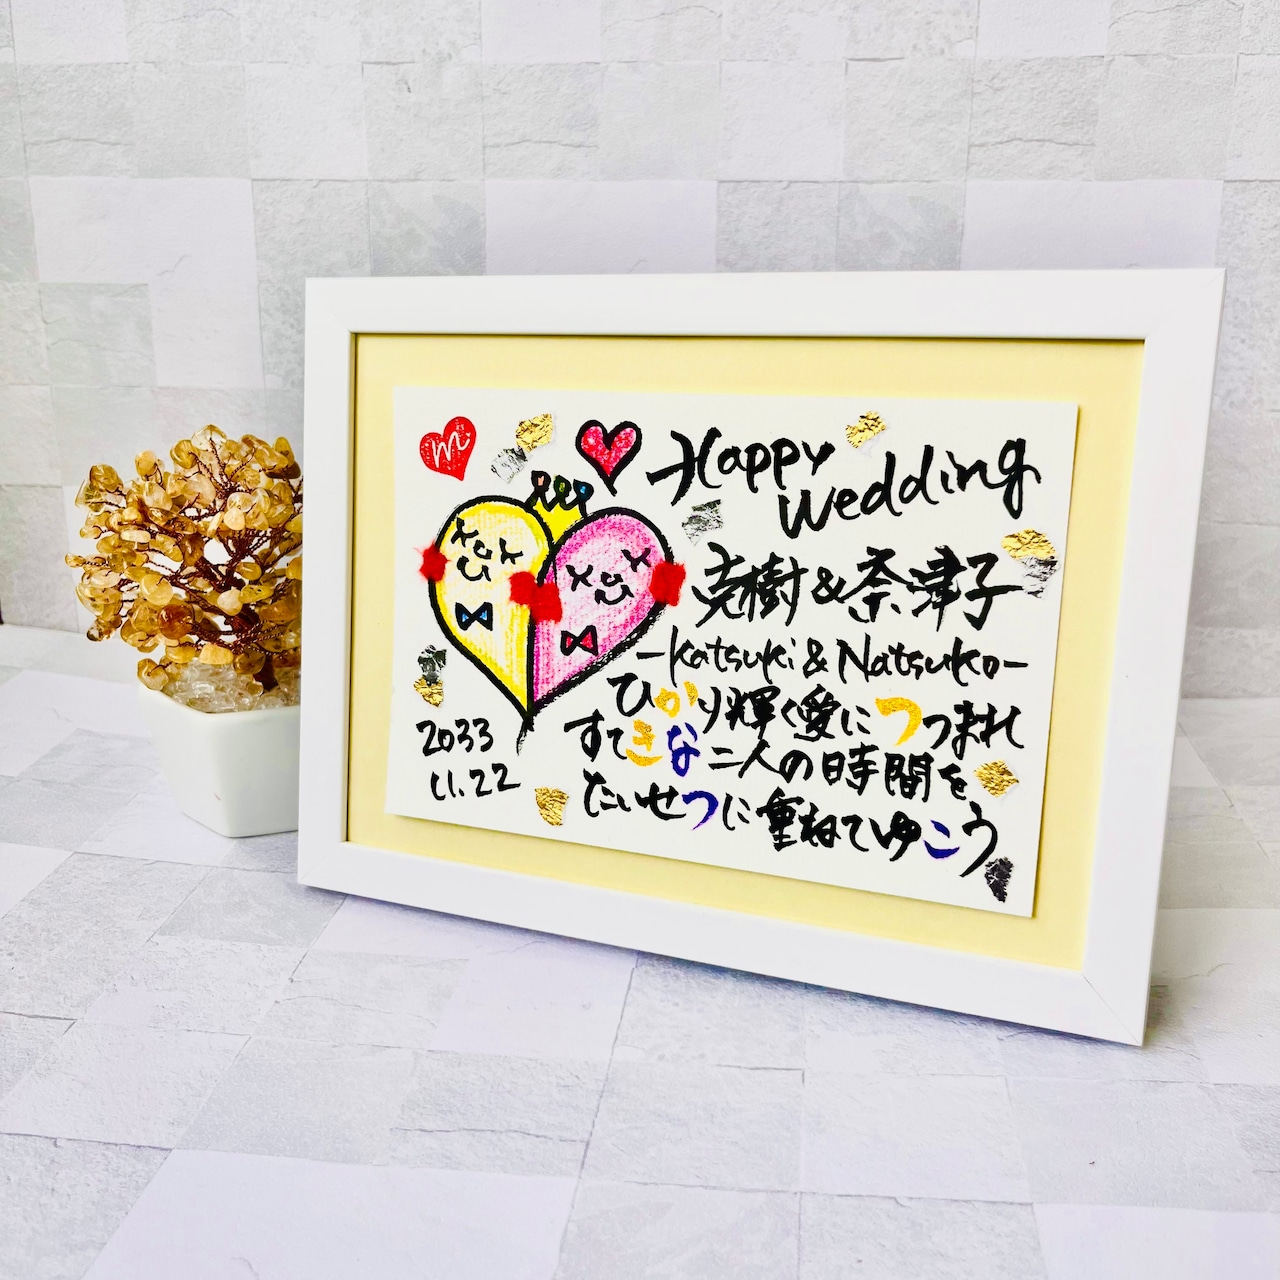 m
Happy
Wedding
克樹&奈津子
-Katsuki & Natsuko-
ひかり輝く愛につつまれ
すてきな二人の時間を
たいせつに重ねてゆこう
2033
11.22